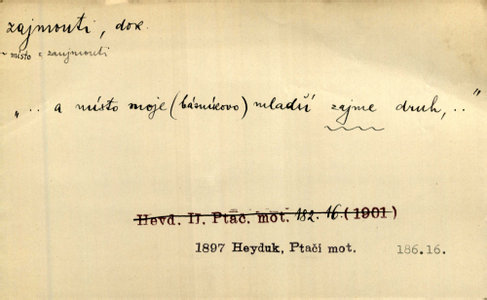 zajmouti, dok.
místo z zaujmouti
„.. a místo moje (básníkovo) mladší zajme druh, .."
Heyd. II. Ptač. mot. 182. 16. (1901)
1897 Heyduk, Ptačí mot. 186.16.